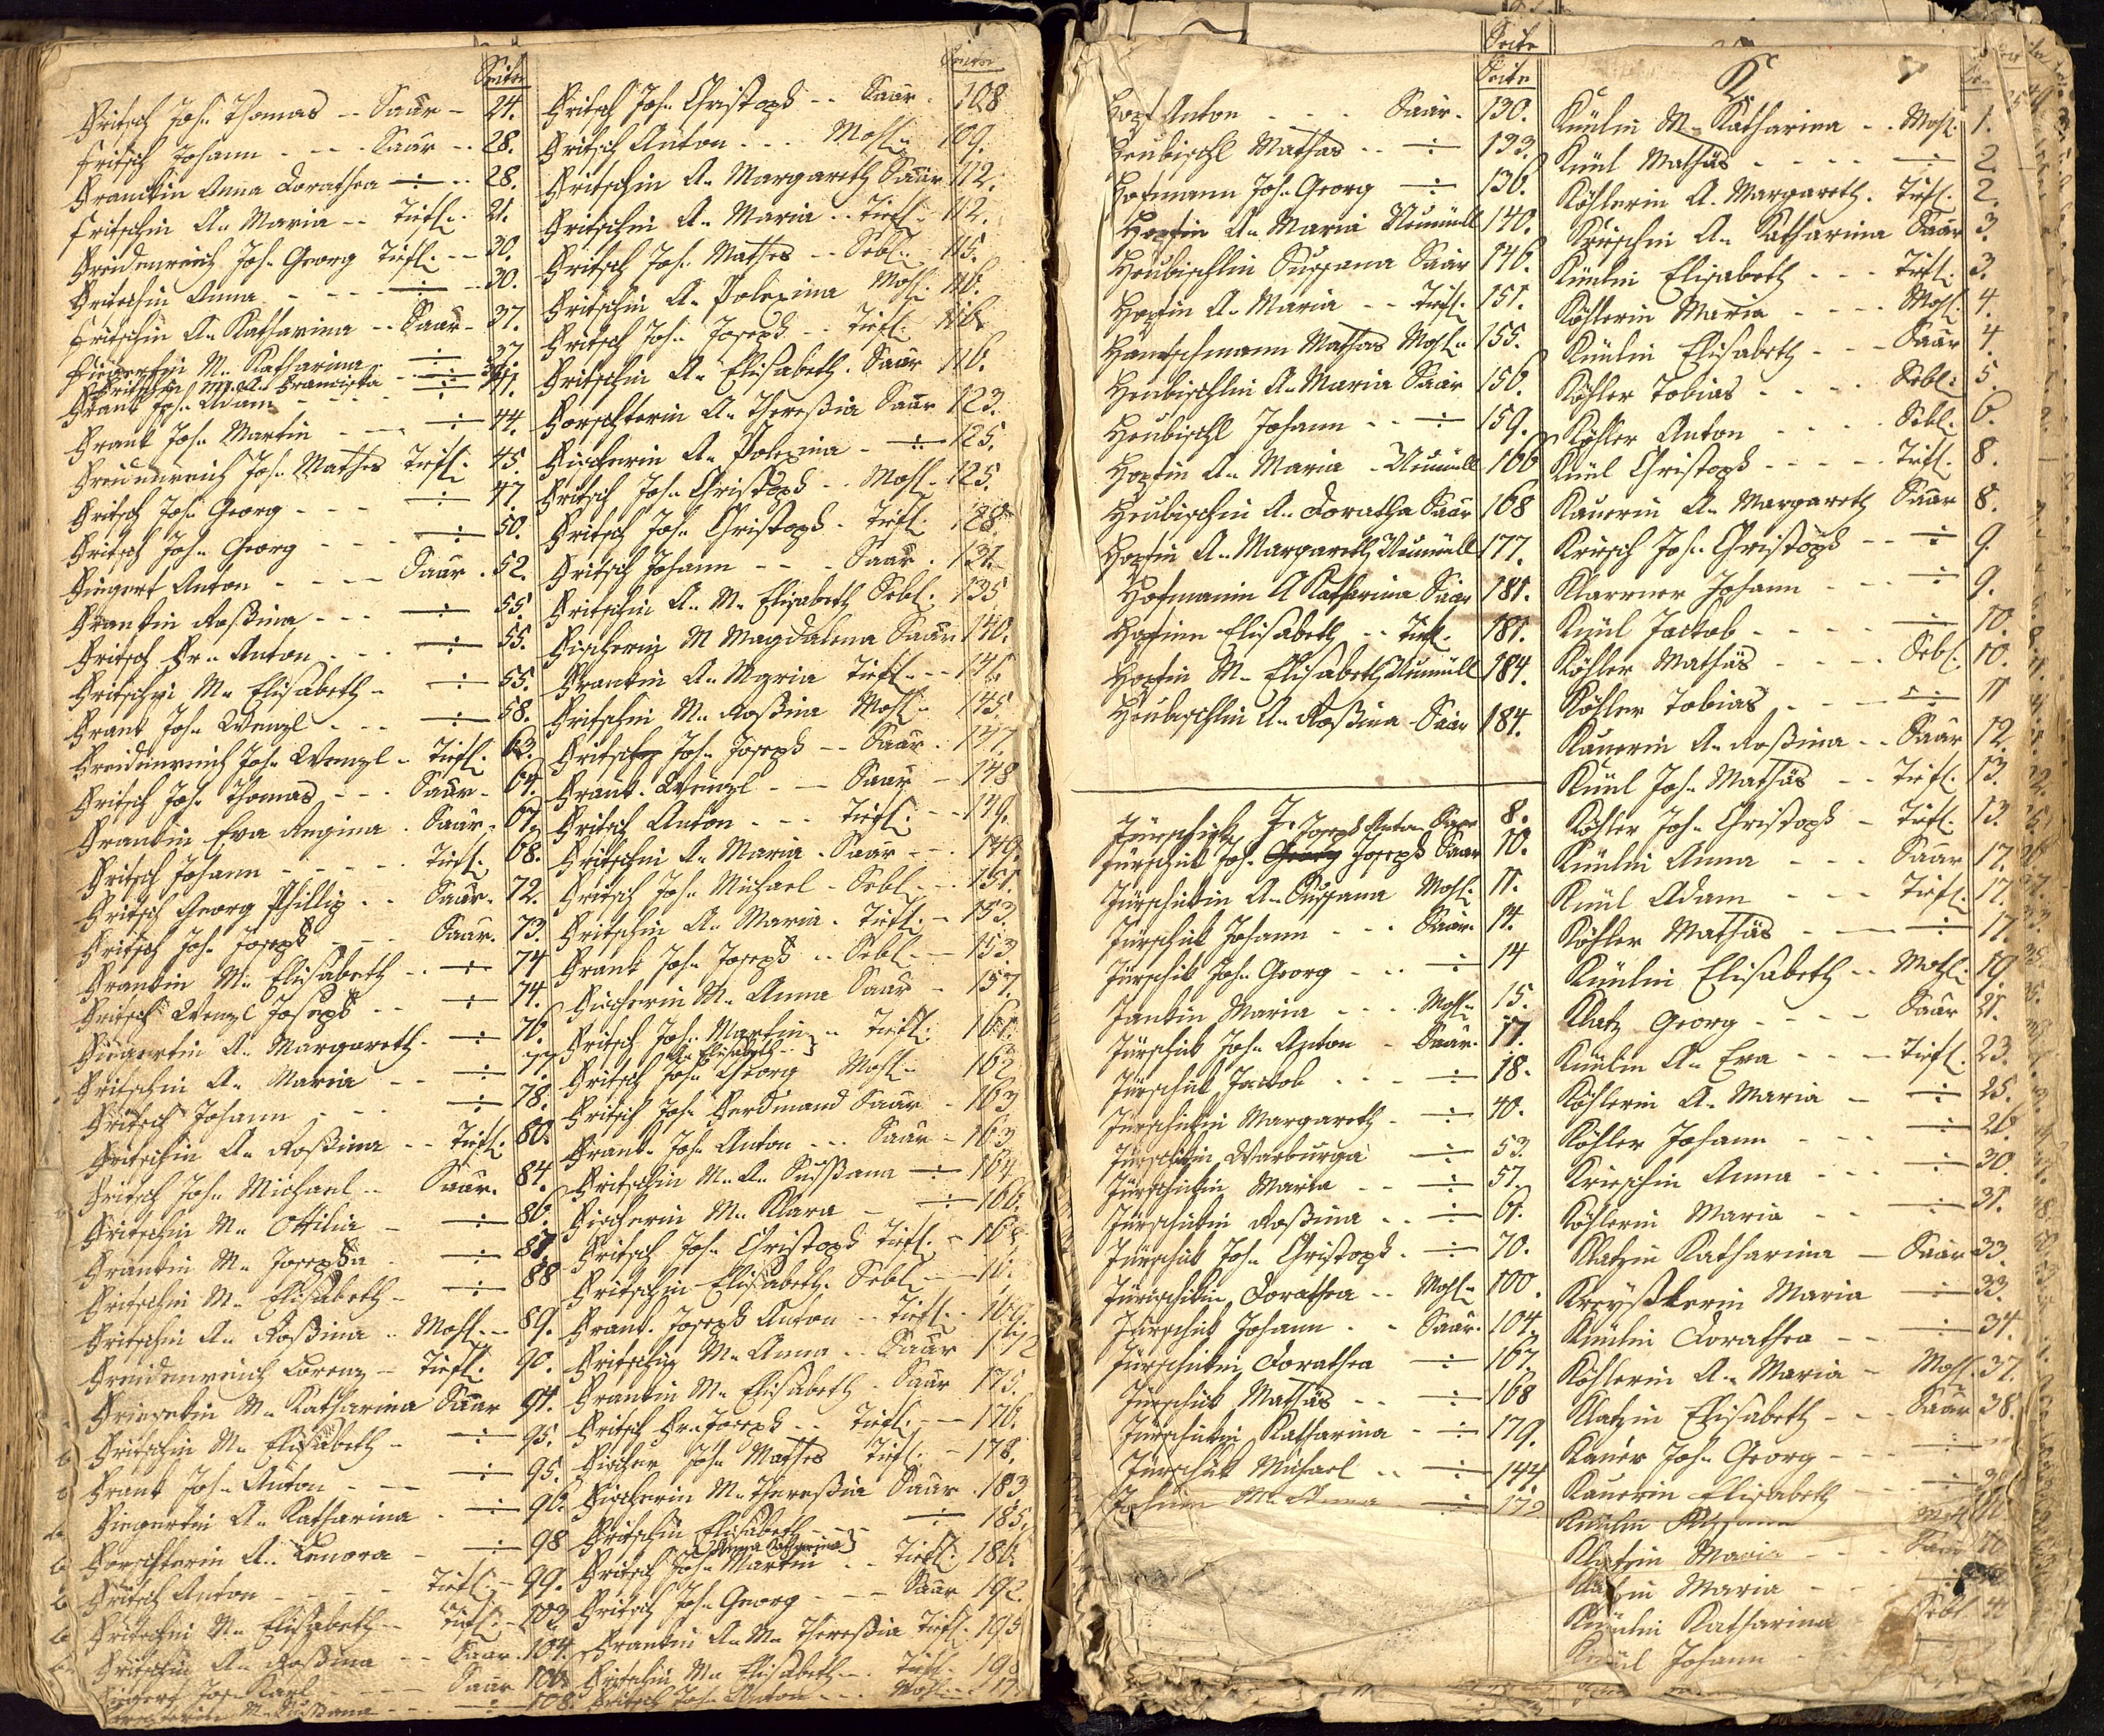 Seite
Fritsch Joh. Thomas -- Saar - 24.
Fritsch Johann - - - Saar -- 28.
Franckin Anna Dorathea -÷- 28.
Fritschin A. Maria -- Tiefl. 21.
Freidenreich Joh. Georg Tiefl. -- 30.
Fritschin Anna - - - ÷ - 30.
Fritschin A. Katharina -- Saar - 37.
Fiegertin M. Katharina - ÷ 37.
Fritschin M. A. Francisca - ÷
Frank Joh. Adam - - ÷ 41.
Frank Joh. Martin - - ÷ 44.
Freidenreich Joh. Mathes Tiefl. 45.
Fritsch Joh. Georg - - - ÷ 47.
Fritsch Joh. Georg - - - ÷ 50.
Fiegert Anton - - - - Saar. 52.
Frankin Roßina - - - ÷ 55.
Fritsch Fr. Anton - - - ÷ 55.
Fritschin M. Elisabeth - ÷ 55.
Frank Joh. Wenzl - - - ÷ 58.
Freidenreich Joh. Wenzl - Tiefl. 63.
Fritsch Joh. Thomas - - - Saar - 64.
Frankin Eva Regina . Saar - 67.
Fritsch Johann - - - - Tiefl. 68.
Fritsch Georg Phillip - - Saar. 72.
Fritsch Joh. Joseph - - - Saar. 73.
Frankin M. Elisabeth - - ÷ 74
Fritsch Wenzl Joseph - - ÷ 74.
Fiegertin A. Margareth - ÷ 76.
Fritschin A. Maria - - ÷ 77.
Fritsch Johann - - - ÷ 78.
Fritschin A. Roßina - - Tiefl. 80.
Fritsch Joh. Michael - - Saar. 84.
Fritschin M. Ottilia - ÷ 86.
Frankin M. Josepha - ÷ 87.
Fritschin M. Elisabeth - ÷ 88
Fritschin A. Roßina .. Mohl. - 89.
Freidenreich Lorenz - Tiefl. 90.
M. Katharina Saar 91.
Fritschin M. Elisabeth - ÷ 95.
Frank Joh. Anton - - ÷ 95.
Fiegertin A. Katharina - ÷ 96.
Forschterin A. Lenora - ÷ 98
Fritsch Anton - - - - Tiefl. - 99.
Fritschin M. Elisabeth - - Tiefl. - 103
Fritschin A. Roßina - - Saar. 104.
Fiegert Joh. Karl - - - Saar
M. Sussana - - - ÷ 108.
Seite
Fritsch Joh. Christoph - - Saar. 108
Fritsch Anton - - - Mohl. 109.
Fritschin A. Margareth Saar 112.
Fritschin A. Maria - - Tiefl. - 112.
Fritsch Joh. Mathes - - Sebl. - 115.
Fritschin A. Polexina Mohl. 116.
Fritsch Joh. Joseph - - Tiefl. 116
Fritschin A. Elisabeth. Saar 116.
Forschterin A. Thereßia Saar 123.
Fischerin A. Polexina - ÷ 125.
Fritsch Joh. Christoph - - Mohl. 125.
Fritsch Joh. Christoph - Tiefl. 128
Fritsch Johann - - - Saar . 131.
Fritschin A. M. Elisabeth Sebl. 135
Fischerin M Magdalena Saar 140.
Frankin A. Maria Tiefl. - -
Fritschin M. Roßina Mohl. 145.
Fritsch Joh. Joseph - - Saar. 147.
Frank. Wenzl - - Saar - 148
Fritsch Anton - - - Tiefl. - - 149.
Fritschin A. Maria . Saar - - 149.
Fritsch Joh. Michael - Sebl. - - 151.
Fritschin A. Maria . Tiefl. - 153.
Frank Joh. Joseph - - Sebl. - - 153
Fischerin M. Anna Saar - 157.
Fritsch Joh. Martin - - Tiefl. 161.
A. Elisabeth
Fritsch Joh. Georg Mohl. - 162
Fritsch Joh. Ferdinand Saar - 163
Frank. Joh. Anton - - - Saar - 163
Fritschin M. A. Sussßana ÷ 164
Fischerin M. Klara - ÷ 166.
Fritsch Joh. Christoph Tiefl. - 168
Fritschin Elisabeth. Sebl. - -
Frank. Joseph Anton - Tiefl. - 169.
Fritschin M. Anna - - Saar 172
Frankin M. Elisabeth . Saar 175.
Fritsch Fr. Joseph - - Tiefl. - - 176.
Fischer Joh. Mathes Tiefl. - 178.
Fischerin M. Thereßia Saar . 183
Fritschin Elisabeth - - - ÷ 185.
Anna Katharina
Fritsch Joh. Martin - - Tiefl. 186.
Fritsch Joh. Georg - - - Saar 192
Frankin A. M. Thereßia Tiefl. 195
Fritschin M. Elisabeth - - Tiefl.
Fritsch Joh. Anton - - - Mohl.
Seite
Seite
Hopf Anton - - - Saar. 130.
Heubischl Mathas - - ÷ 133.
Hofmann Joh. Georg ÷ 136.
Hopfin A. Maria Neumüll 140.
Heubischlin Sussana Saar 146.
Hopfin A. Maria - - Tiefl. 151.
Hantschmann Mathas Mohl. 155.
Heubischlin A. Maria Saar 156.
Heubischl Johann - - ÷ 159.
Hopfin A. Maria - Neumüll 166
Heubischin A. Doratha Saar 168
Hopfin A. Margareth Neumüll 177.
Hofmanin A Katharina Saar 181.
Hopfinn Elisabeth - - Tiefl. 181.
Hopfin M. Elisabeth Neumüll 184.
Heubischlin A. Roßina - Saar 184.
J.
Jürschick Joseph Anton Saar 8.
Jürschik Joh. Georg Joseph Saar 10.
Jürschikin A. Sussana Mohl. 11.
Jürschik Johann - - - Saar. 14.
Jürschik Joh. Georg - - ÷ 14
Jankin Maria - - - Mohl. 15.
Jürschik Joh. Anton - Saar. 17.
Jürschik Jackob - - - ÷ 18.
Jürschikin Margareth - ÷ 40.
Jürschikin Warburga ÷ 53.
Jürschikin Maria - - ÷ 57.
Jürschikin Roßina - - ÷ 61.
Jürschik Joh. Christoph - ÷ 70.
Jürschikin Dorathea - - Mohl. 100.
Jürschik Johann - - Saar. 104.
Jürschikin Dorathea ÷ 167.
Jürschik Mathäs - - ÷ 168
Jürschikin Katharina - ÷ 179.
Jürschik Michael - - ÷ 144
M. Anna ÷ 172
K.
Küulin M. Katharina - - Mohl. 1.
Küul Mathäs - - - - ÷ 2.
Köhlerin A. Margareth. Tiefl. 2.
Kirschin A. Katharina Saar 3.
Küulin Elisabeth - - - Tiefl. 3.
Köhlerin Maria - - - - Mohl. 4.
Küulin Elisabeth - - - Saar 4
Köhler Tobias - - - - Sebl. 5.
Köhler Anton - - - - Sebl. 6.
Küul Christoph - - - - Tiefl. 8.
Kauerin A. Margareth Saar 8.
Kirsch Joh. Christoph - - ÷ 9.
Klarrner Johann - - - ÷ 9.
Küul Jackob - - - - ÷ 10.
Köhler Mathäs - - - - Sebl. 10.
Köhler Tobias - - - ÷ 11
Kauerin A. Roßina - - Saar 12.
Küul Joh. Mathäs - - Tiefl. 13.
Köhler Joh. Christoph - Tiefl. 13.
Küulin Anna - - - Saar 17.
Küul Adam - - - Tiefl. 17.
Köhler Mathäs - - - ÷ 17.
Küulin Elisabeth - - Mohl. 19.
Klatz Georg - - - - Saar 21.
Küulin A. Eva - - - Tiefl. 23.
Köhlerin A. Maria - ÷ 25.
Köhler Johann - - - ÷ 26.
Krirschin Anna - - - ÷ 30.
Köhlerin Maria - - ÷ 31.
Klatzin Katharina - Saar 33.
Kreyßlerin Maria ÷ 33.
Küulin Dorathea - - ÷ 34.
Köhlerin A. Maria - Mohl. 37.
Klatzin Elisabeth - - Saar 38.
Kauer Joh. Georg - - ÷
Kauerin Elisabeth - - ÷
Küulin Sussana
Klatzin Maria - - - Saar
Klatzin Maria - - - ÷
Küulin Katharina - Sebl.
Küul Johann -